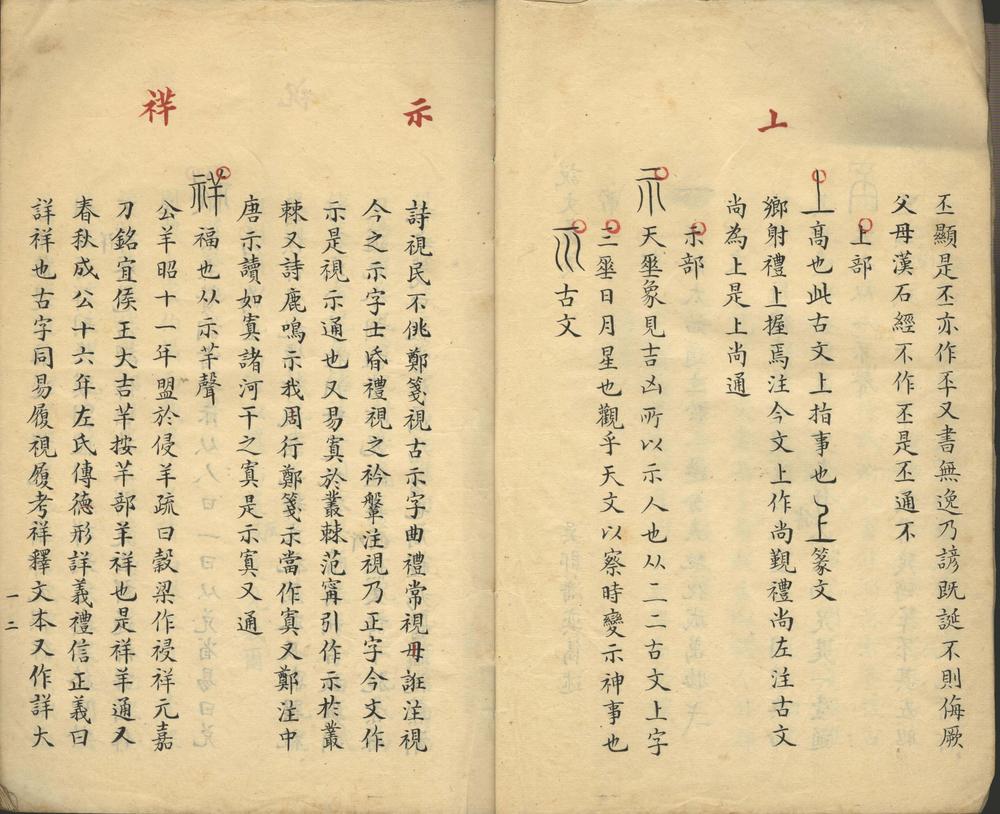 丕顯是丕亦作㔻又書無逸乃諺既誕不則侮厥
父母漢石經不作丕是丕通不
上
上部
丄高也此古文上指事也𠄞篆文
鄉射禮上握焉注今文上作尚覲禮尚左注古文
尚為上是上尚通
示
示部
示天𠂹象見吉凶所以示人也从二二古文上字
三𠂹日月星也觀乎天文以察時變示神事也
古文
詩視民不佻鄭箋視古示字曲禮常視毋誑注視
今之示字士昏禮視之衿鞶注視乃正字今文作
示是視示通也又易寘於叢棘范寗引作示於叢
棘又詩鹿鳴示我周行鄭箋示當作寘又鄭注中
唐示讀如寘諸河干之寘是示寘又通
祥
祥福也从示羊聲
公羊昭十一年盟於侵羊疏曰穀梁作祲祥元嘉
刀銘宜侯王大吉羊按羊部羊祥也是祥羊通又
春秋成公十六年左氏傳德形詳義禮信正義曰
詳祥也古字同易履視履考祥釋文本又作詳大
一二